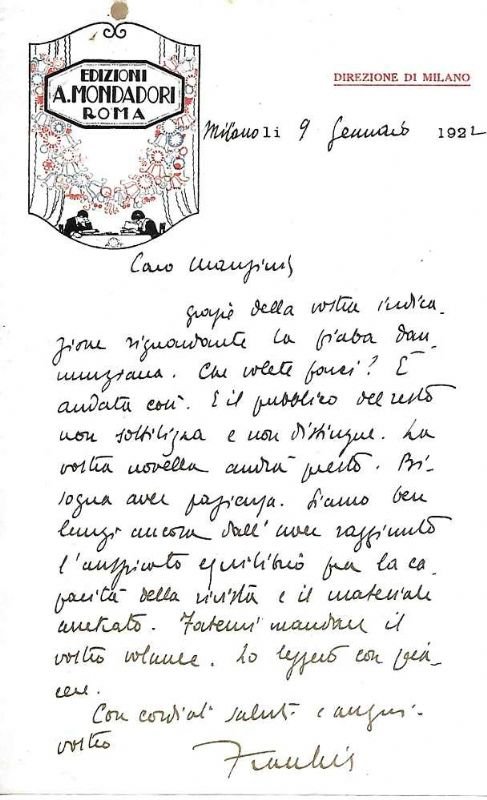 EDIZIONI
A. MONDADORI
ROMA
DIREZIONE DI MILANO
Milano li 9 Gennaio 1922
Caro
grazie della vostra indica-
zione riguardante la fiaba dan-
nunziana. Che volete farci? È
andata così. E il pubblico del resto
non sottiligna e non distingue. La
vostra novella andrà presto. Bi-
sogna aver pazienza. Siamo ben
lungi ancora dall'aver raggiunto
l'auspicato equilibrio fra la ca-
pacità della rivista e il materiale
arretrato. Fatemi mandare il
vostro volume. Lo leggerò con pia-
cere.
Con cordiali saluti e auguri.
vostro